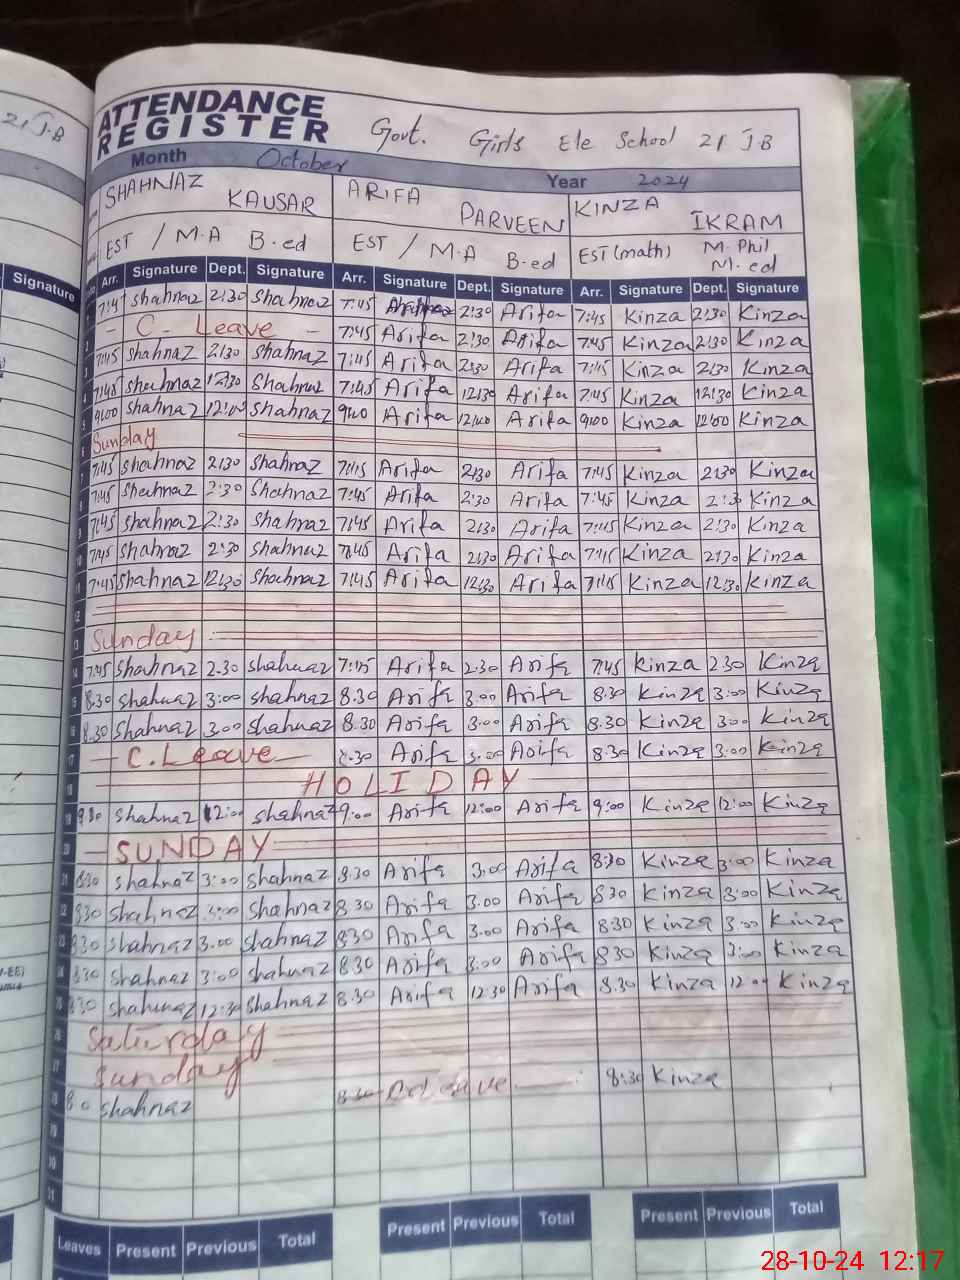 21 J.B
Signature
ATTENDANCE
REGISTER
Govt. Girls Ele School 21 J.B
Month October Year 2024
SHAHNAZ KAUSAR ARIFA PARVEEN KINZA IKRAM
EST / M.A B.ed EST / M.A B.ed EST (math) M.Phil M.ed
Arr. Signature Dept. Signature Arr. Signature Dept. Signature Arr. Signature Dept. Signature
shahnaz 2:30 Shahnaz 7:45 2:30 Arifa 7:45 Kinza 2:30 Kinza
2 - C. Leave - 7:45 Arifa 2:30 Arifa 7:45 Kinza 2:30 Kinza
3 7:45 shahnaz 2:30 shahnaz 7:45 Arifa 2:30 Arifa 7:45 Kinza 2:30 Kinza
4 7:45 shahnaz 12:30 Shahnaz 7:45 Arifa 12:30 Arifa 7:45 Kinza 12:30 Kinza
5 9:00 shahnaz 12:00 shahnaz 9:00 Arifa 12:00 Arifa 9:00 Kinza 12:00 Kinza
6 Sunday
7 7:45 shahnaz 2:30 shahnaz 7:45 Arifa 2:30 Arifa 7:45 Kinza 2:30 Kinza
8 7:45 Shahnaz 2:30 Shahnaz 7:45 Arifa 2:30 Arifa 7:45 Kinza 2:30 Kinza
9 7:45 shahnaz 2:30 Shahnaz 7:45 Arifa 2:30 Arifa 7:45 Kinza 2:30 Kinza
10 7:45 Shahnaz 2:30 shahnaz 7:45 Arifa 2:30 Arifa 7:45 Kinza 2:30 Kinza
11 7:45 shahnaz 12:30 Shahnaz 7:45 Arifa 12:30 Arifa 7:45 Kinza 12:30 Kinza
12
13 Sunday
14 7:45 Shahnaz 2.30 shahnaz 7:45 Arifa 2:30 Arifa 7:45 Kinza 2:30 Kinza
15 8.30 shahnaz 3:00 shahnaz 8.30 Arifa 3.00 Arifa 8:30 Kinza 3:00 Kinza
16 8.30 Shahnaz 3.00 Shahnaz 8.30 Arifa 3:00 Arifa 8.30 Kinza 3:00 Kinza
17 - C. Leave - 8.30 Arifa 3.00 Arifa 8:30 Kinza 3:00 Kinza
18 HOLIDAY
19 shahnaz 12:00 shahnaz 9:00 Arifa 12:00 Arifa 9:00 Kinza 12:00 Kinza
20 - SUNDAY
21 8:30 shahnaz 3:00 shahnaz 8.30 Arifa 3:00 Arifa 8:30 Kinza 3:00 Kinza
22 8:30 shahnaz 3:00 shahnaz 8.30 Arifa 3.00 Arifa 8:30 Kinza 3:00 Kinza
23 8:30 shahnaz 3.00 shahnaz 8:30 Arifa 3.00 Arifa 8:30 Kinza 3:00 Kinza
24 8:30 shahnaz 3:00 shahnaz 8.30 Arifa 3:00 Arifa 8:30 Kinza 3:00 Kinza
25 8:30 shahnaz 12:30 Shahnaz 8.30 Arifa 12:30 Arifa 8.30 Kinza 12:00 Kinza
26 Saturday
27 Sunday
28 shahnaz 8:30 Kinza
29
30
31
Leaves Present Previous Total Present Previous Total Present Previous Total
28-10-24 12:17